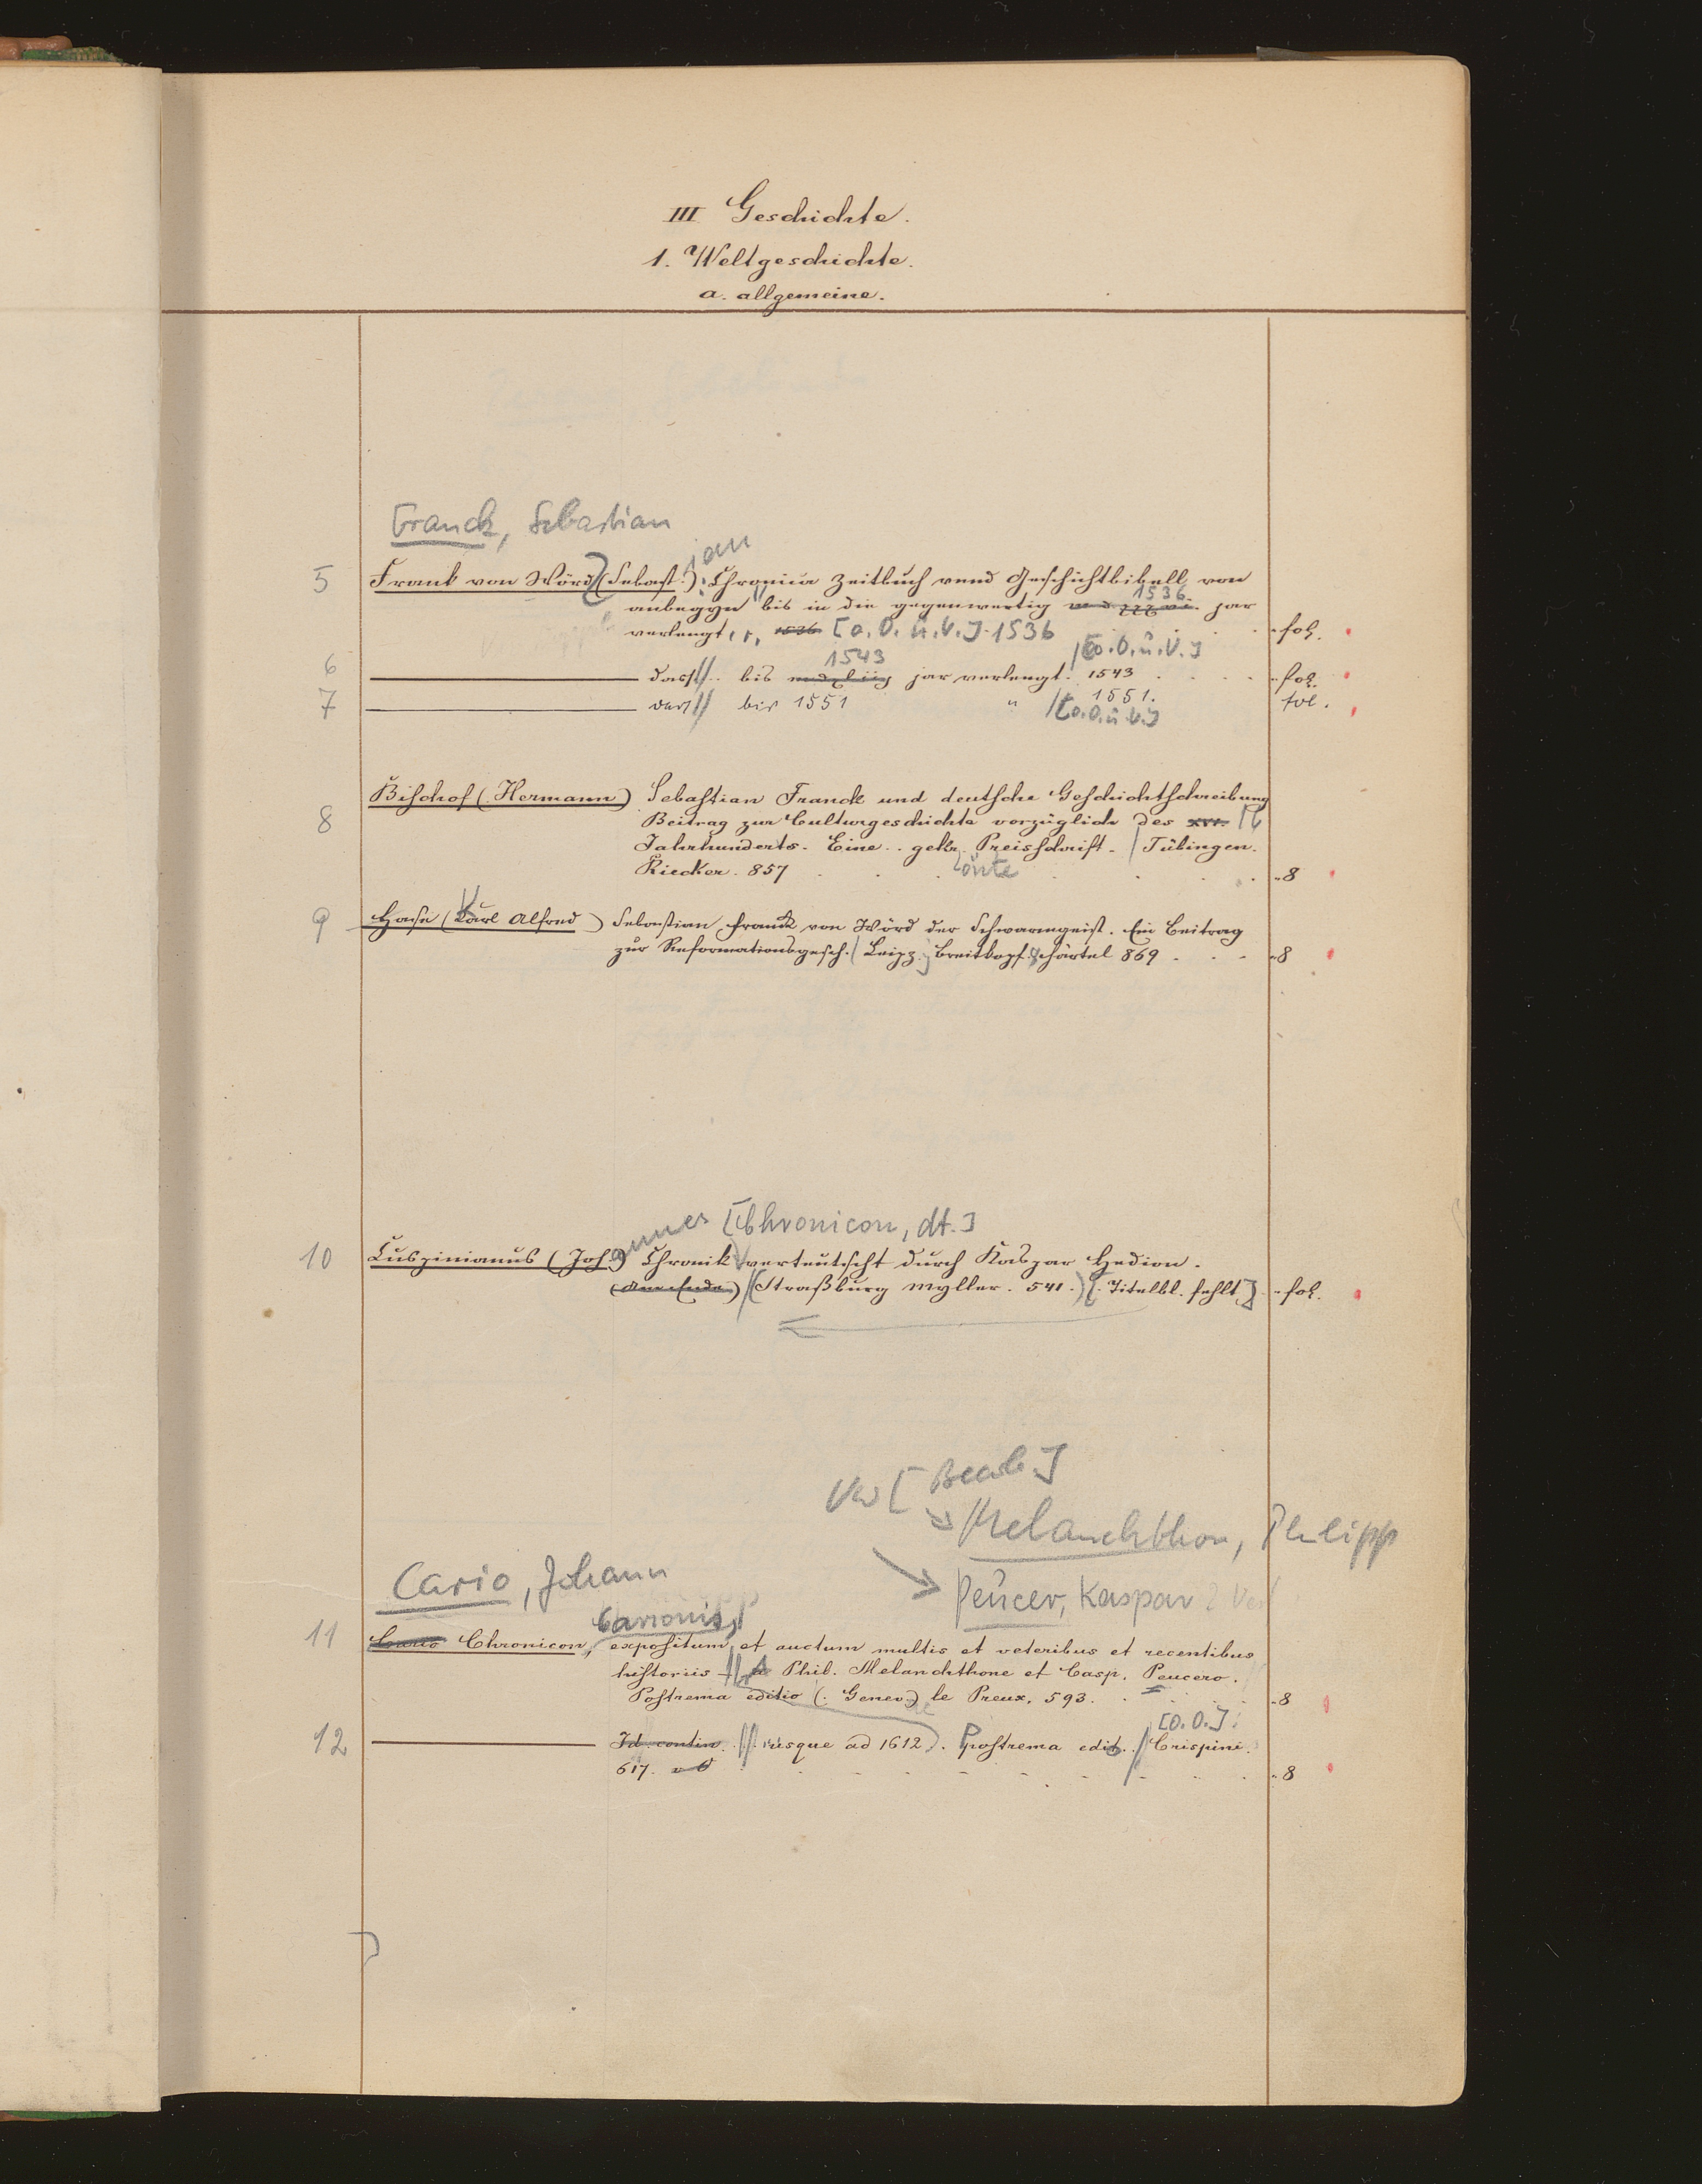 III Geschichte.
1. Weltgeschichte.
a. allgemeine.
Franck, Sebastian
ian
5 Frank von Wörd (Sebast.) : Chronica Zeitbuch vnnd Geschichtbibell von
1536
anbegyn bis in die gegenwertig mdxxxvi. jar
verlengt, 1536 [o. O. u. V.] 1536 fol.
[o. O. u. V.]
1543
6 dass // bis mdxliij jar verlengt. 1543 fol.
7 dass // bis 1551 " 1551. fol.
[o. O. u. V.]
8 Bischof (Hermann) Sebastian Franck und deutsche Geschichtschreibung
Beitrag zur Culturgeschichte vorzüglich des xvi. 16
Jahrhunderts. Eine gekr. Preisschrift. / Tübingen.
Riecker. 857 önte 8
9 Hase (Karl Alfred) Sebastian Franck von Wörd der Schwarmgeist. Ein Beitrag
zur Reformationsgesch. / Leipz. Breitkopf & Härtel 869 8
annes [Chronicon, dt.]
10 Cuspinianus (Joh.) Chronik verteutscht durch Kaspar Hedion.
(Am Ende) / (Straßburg Myller. 541.) [Titelbl. fehlt] fol.
Vw [Bearb.]
Melanchthon, Philipp
Cario, Johann
Peucer, Kaspar
Carionis
11 Cario Chronicon, expositum et auctum multis et veteribus et recentibus
historiis // a Phil. Melanchthone et Casp. Peucero.
Postrema editio (Genev.) le Preux. 593. 8
[O. O.]:
12 Id. contin. // usque ad 1612). Postrema edit. / Crispini.
617. 8